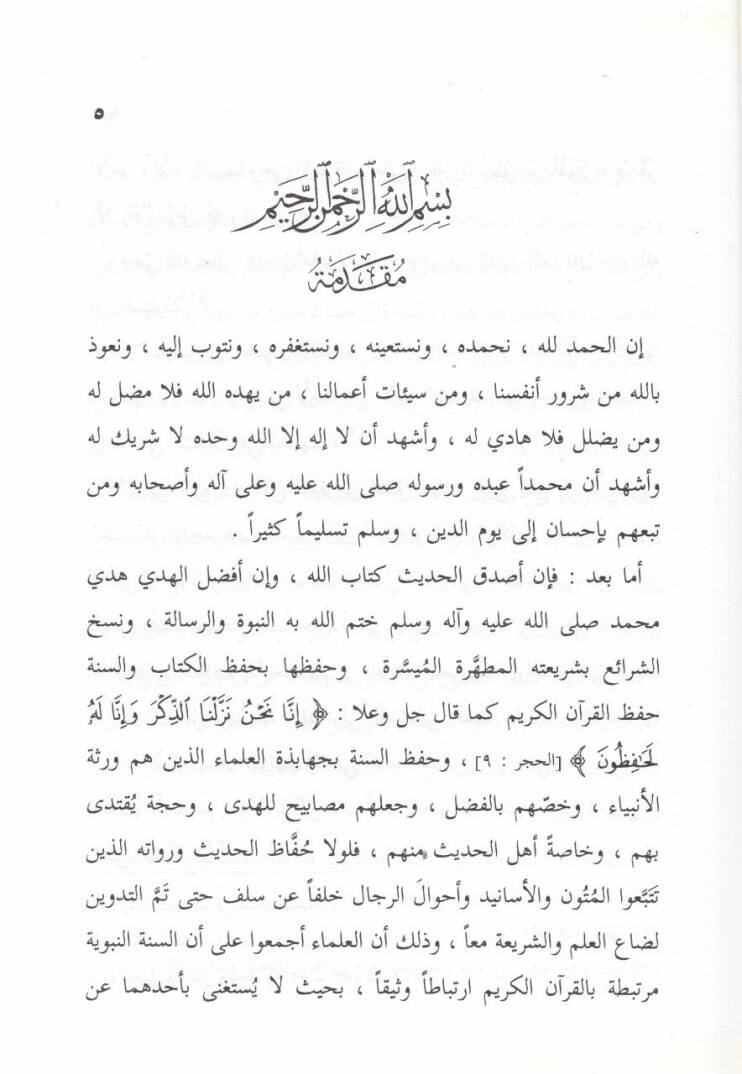 ٥
بِسْمِ اللهِ الرَّحْمٰنِ الرَّحِيْمِ
مُقَدِّمَةٌ
إن الحمد لله ، نحمده ، ونستعينه ، ونستغفره ، ونتوب إليه ، ونعوذ
بالله من شرور أنفسنا ، ومن سيئات أعمالنا ، من يهده الله فلا مضل له
ومن يضلل فلا هادي له ، وأشهد أن لا إله إلا الله وحده لا شريك له
وأشهد أن محمداً عبده ورسوله صلى الله عليه وعلى آله وأصحابه ومن
تبعهم بإحسان إلى يوم الدين ، وسلم تسليماً كثيراً .
أما بعد : فإن أصدق الحديث كتاب الله ، وإن أفضل الهدي هدي
محمد صلى الله عليه وآله وسلم ختم الله به النبوة والرسالة ، ونسخ
الشرائع بشريعته المطهَّرة المُيسَّرة ، وحفظها بحفظ الكتاب والسنة
حفظ القرآن الكريم كما قال جل وعلا : ﴿ إِنَّا نَحْنُ نَزَّلْنَا ٱلذِّكْرَ وَإِنَّا لَهُۥ
لَحَٰفِظُونَ ﴾ [الحجر : ٩] ، وحفظ السنة بجهابذة العلماء الذين هم ورثة
الأنبياء ، وخصّهم بالفضل ، وجعلهم مصابيح للهدى ، وحجة يُقتدى
بهم ، وخاصةً أهل الحديث منهم ، فلولا حُفَّاظ الحديث ورواته الذين
تَتَبَّعوا المُتُون والأسانيد وأحوالَ الرجال خلفاً عن سلف حتى تَمَّ التدوين
لضاع العلم والشريعة معاً ، وذلك أن العلماء أجمعوا على أن السنة النبوية
مرتبطة بالقرآن الكريم ارتباطاً وثيقاً ، بحيث لا يُستغنى بأحدهما عن